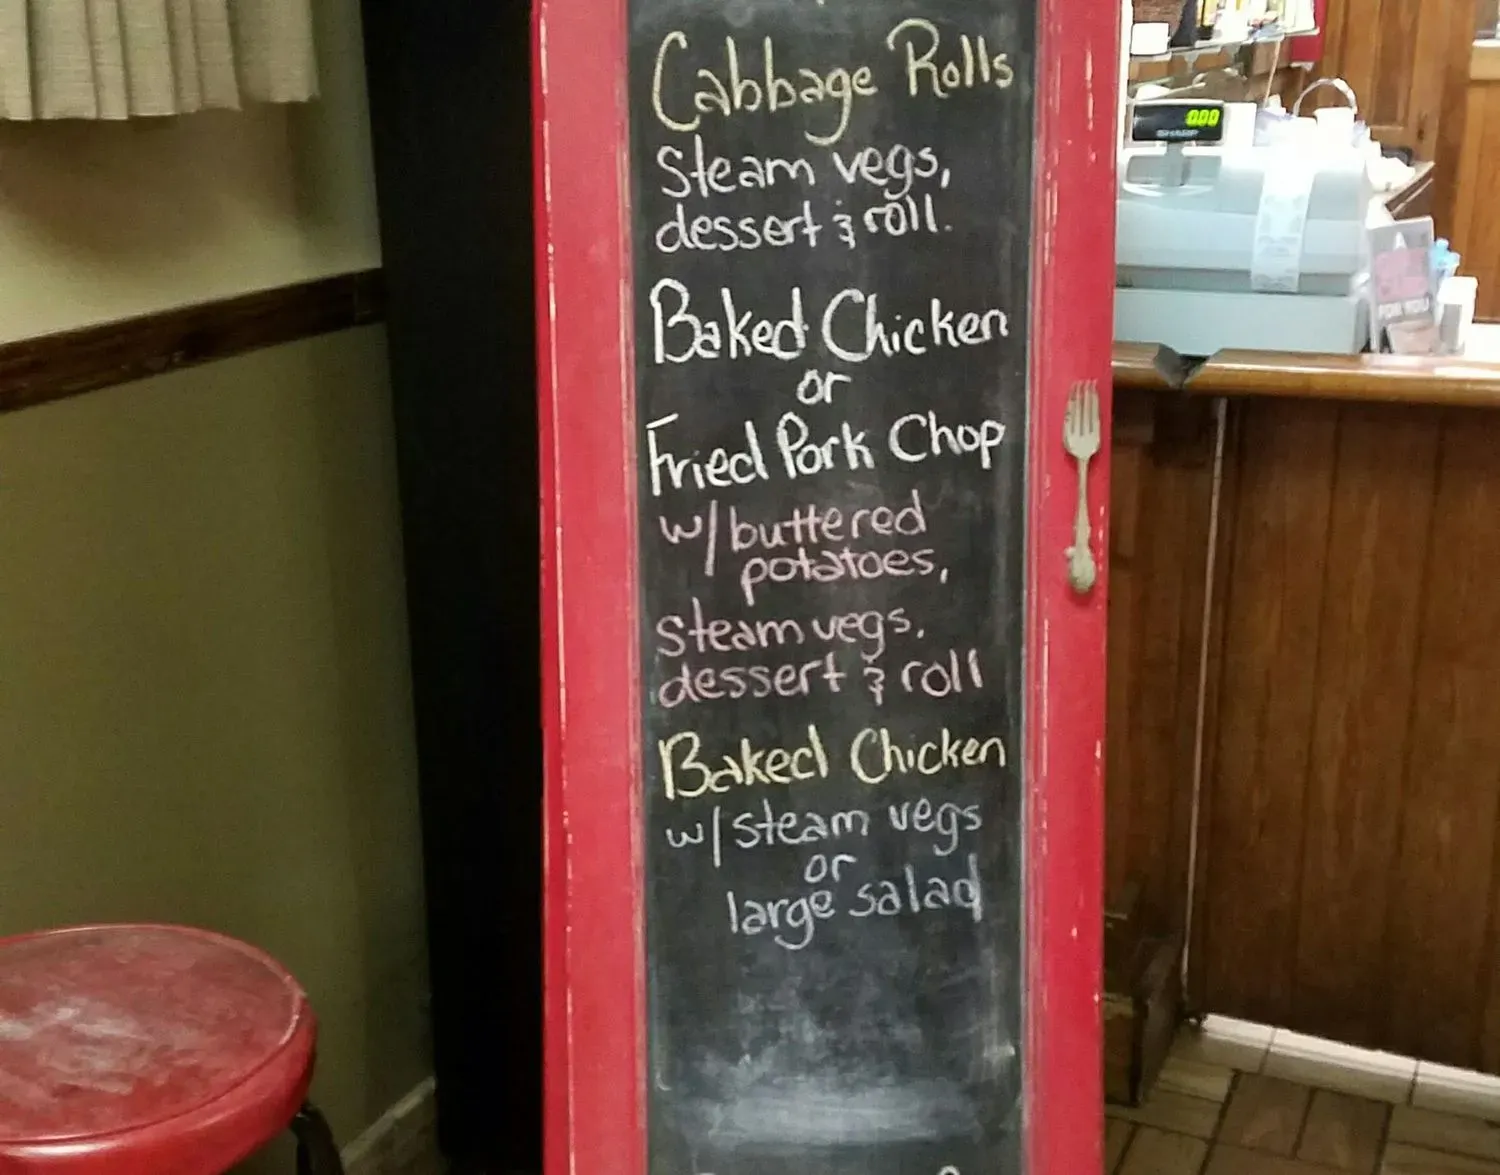 Cabbage Rolls
steam vegs,
dessert & roll.
Baked Chicken
or
Fried Pork Chop
w/ buttered
potatoes,
steam vegs.
dessert & roll
Baked Chicken
w/ steam vegs
or
large salad
0.00
SHARP